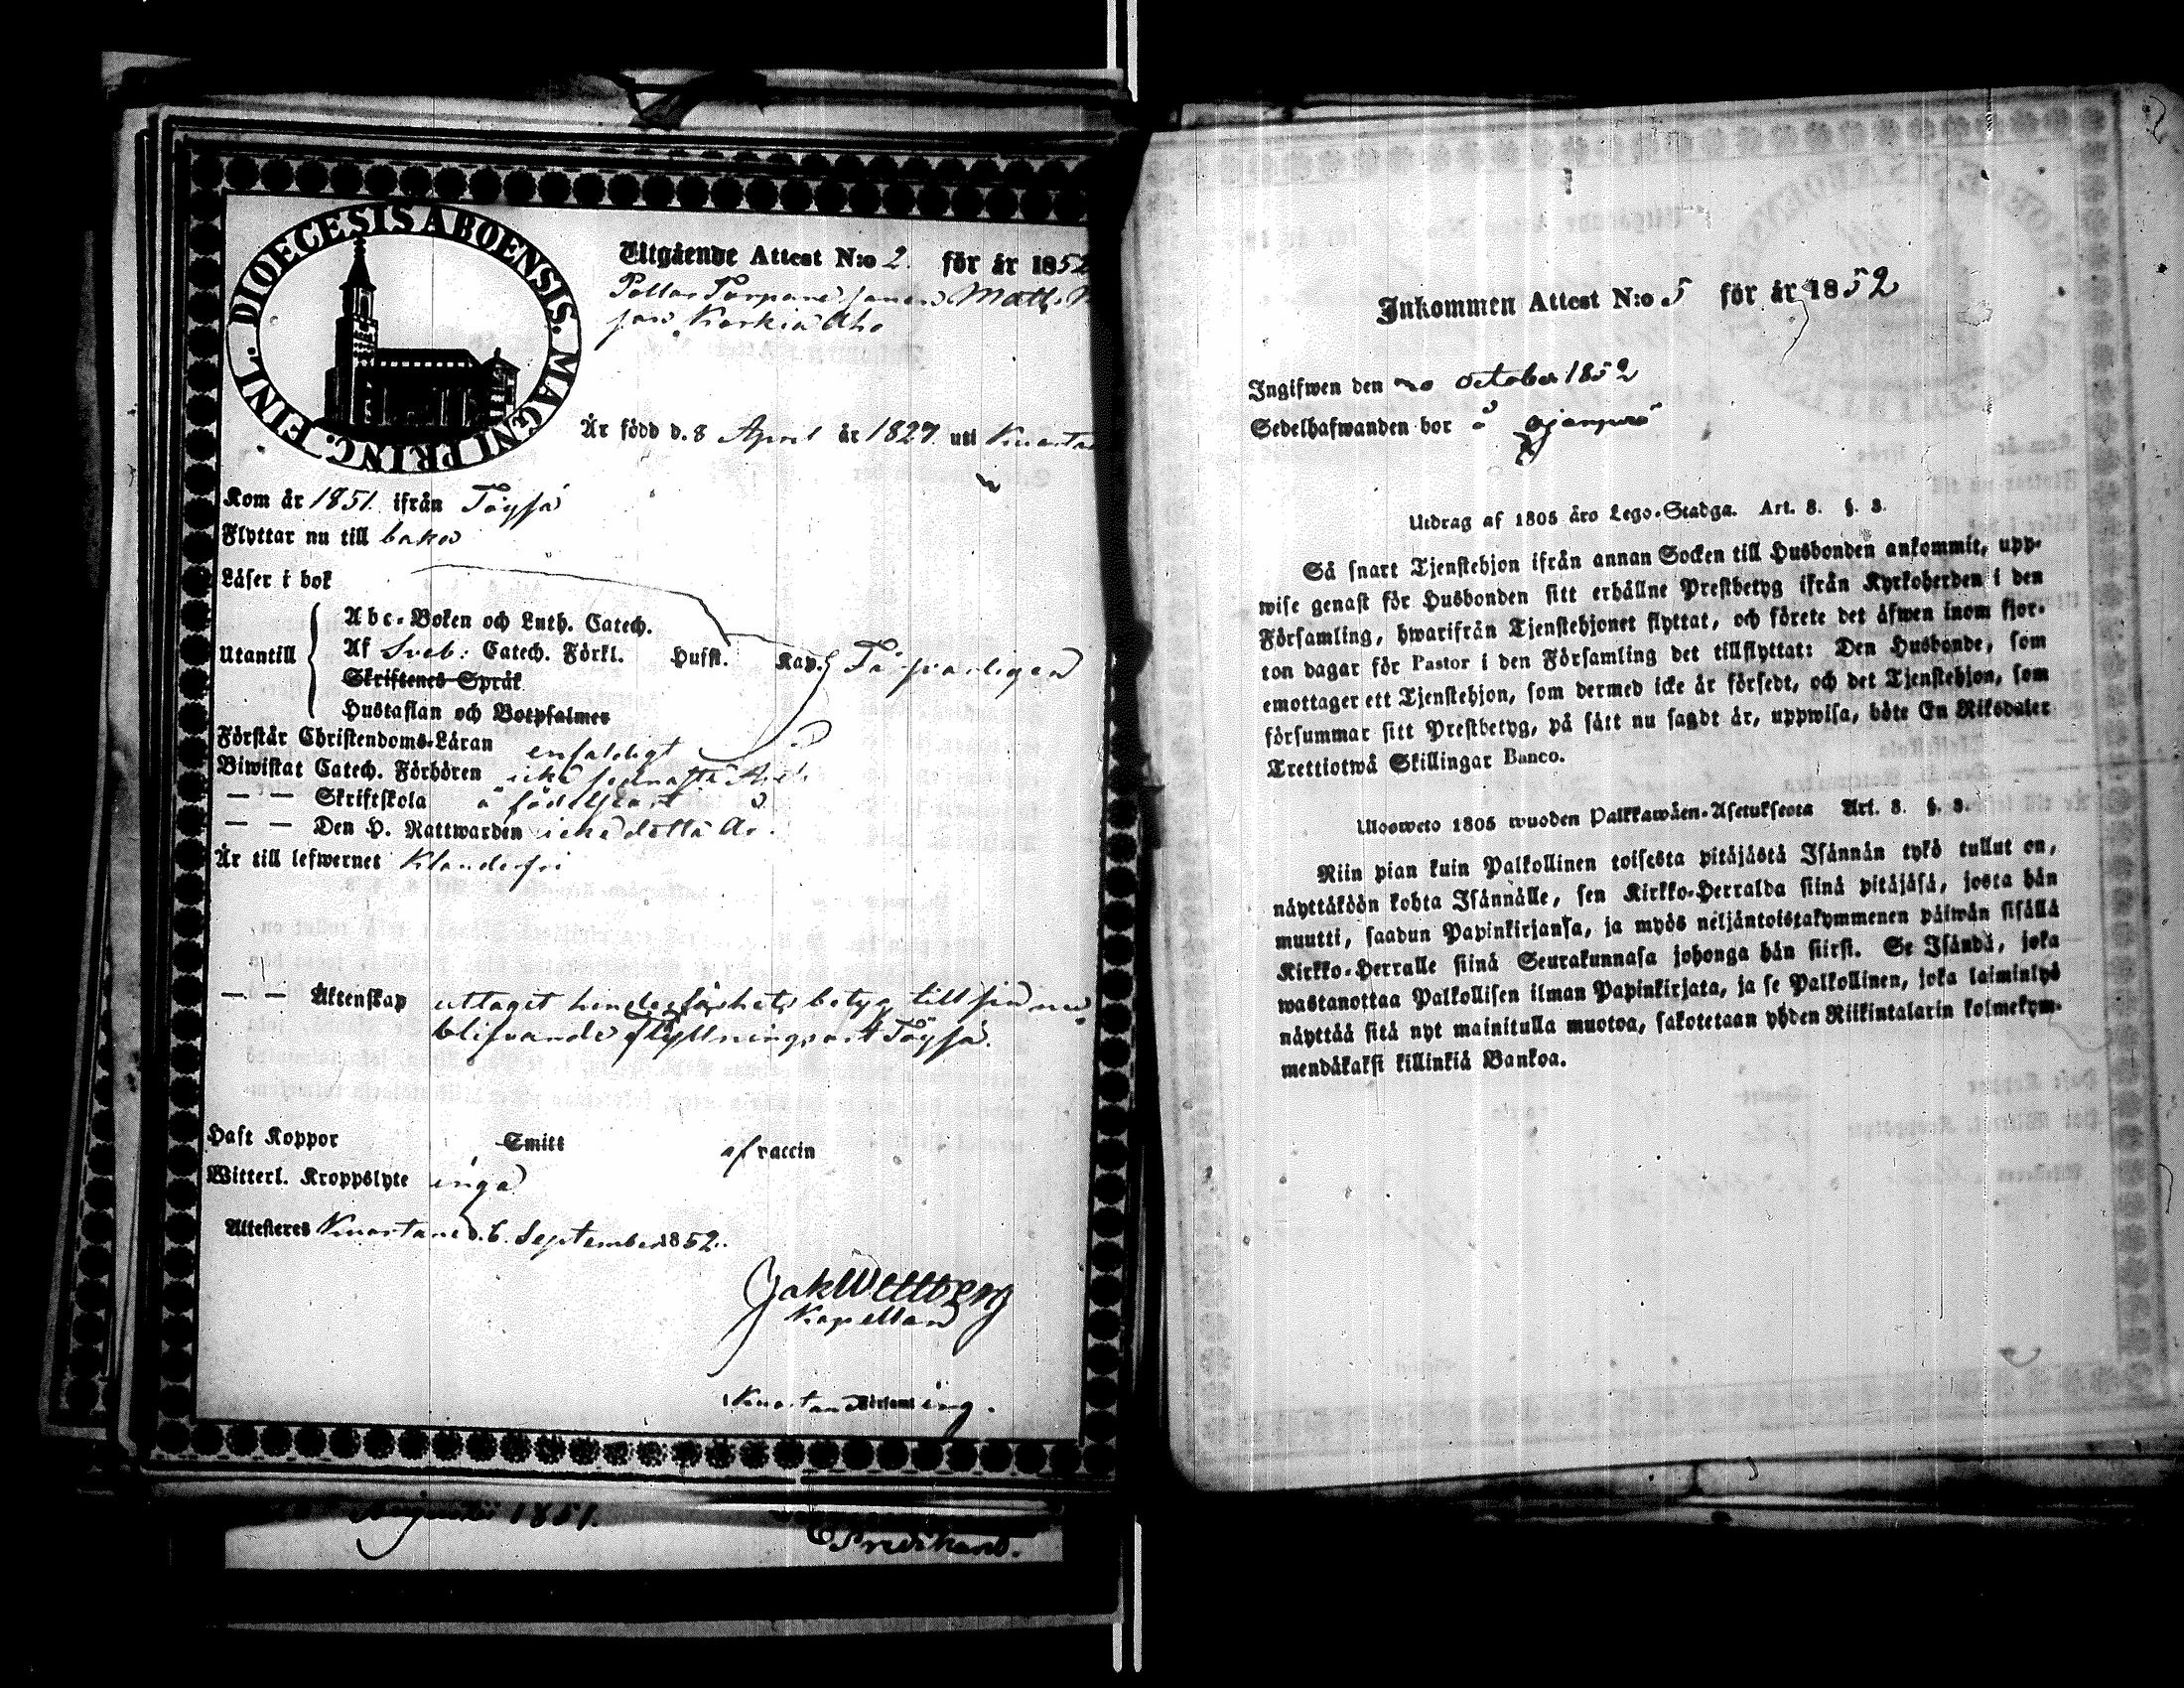 DIOECESIS ABOENSIS. MAGNI PRINC. FINL.
Utgående Attest N:o 2. för år 1852
Matts
Är född d. 8 April år 1827 uti Kuorta
Kom år 1851. ifrån Töysä
Flyttar nu till
Läser i bok
Abc-Boken och Luth. Catech.
Utantill Af Sveb: Catech. Förkl. Hufst. Kap.
Skriftenes Språk
Hustaflan och Botpsalmer
Förstår Christendoms-Läran enfaldigt
Biwistat Catech. Förhören icke
— — Skriftskola å födelseort
— — Den H. Nattwarden icke detta år.
Är till lefwernet klanderfri
— — Äktenskap uttaget hinderslöshets betyg till sin nu
blifvande flyttningsort Töysä.
Haft Koppor Smitt af vaccin
Witterl. Kroppslyte inga
Attesteres Kuortane d. 6. September 1852.
Jak Wettberg
Kapellan
i Kuortane Församling.
Augusti 1851.
Predikand.
Inkommen Attest N:o 5 för år 1852
Ingifwen den October 1852
Sedelhafwanden bor å
Utdrag af 1805 års Lego-Stadga. Art. 8. §. 3.
Så snart Tjenstehjon ifrån annan Socken till Husbonden ankommit, upp-
wise genast för Husbonden sitt erhållne Prestbetyg ifrån Kyrkoherden i den
Församling, hwarifrån Tjenstehjonet flyttat, och förete det äfwen inom fjor-
ton dagar för Pastor i den Församling det tillflyttat: Den Husbonde, som
emottager ett Tjenstehjon, som dermed icke är försedt, och det Tjenstehjon, som
försummar sitt Prestbetyg, på sätt nu sagdt är, uppwisa, böte En Riksdaler
Trettiotwå Skillingar Banco.
Ulosweto 1805 wuoden Palkkawäen-Asetuksesta Art. 8. §. 3.
Niin pian kuin Palkollinen toisesta pitäjästä Isännän tykö tullut on,
näyttäköön kohta Isännälle, sen Kirkko-Herralda siinä pitäjäsä, josta hän
muutti, saadun Papinkirjansa, ja myös neljäntoistakymmenen päiwän sisällä
Kirkko-Herralle siinä Seurakunnasa johonga hän siirsi. Se Isändä, joka
wastanottaa Palkollisen ilman Papinkirjata, ja se Palkollinen, joka laiminlyö
näyttää sitä nyt mainitulla muotoa, sakotetaan yhden Riikintalarin kolmekym-
mendäkaksi killinkiä Bankoa.